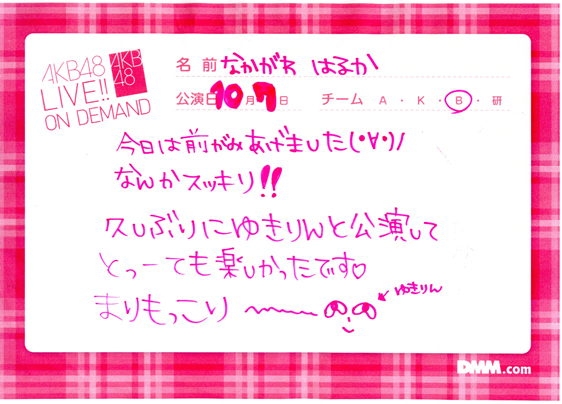 AKB48
LIVE!!
ON DEMAND
AKB
48
名前 なかがわ はるか
公演日 10月7日 チーム A・K・B・研
今日は前がみあげました(・∀・)ノ
なんかスッキリ!!
久しぶりにゆきりんと公演して
とっーても楽しかったです♡
まりもっこり 〜〜
ゆきりん
DMM.com